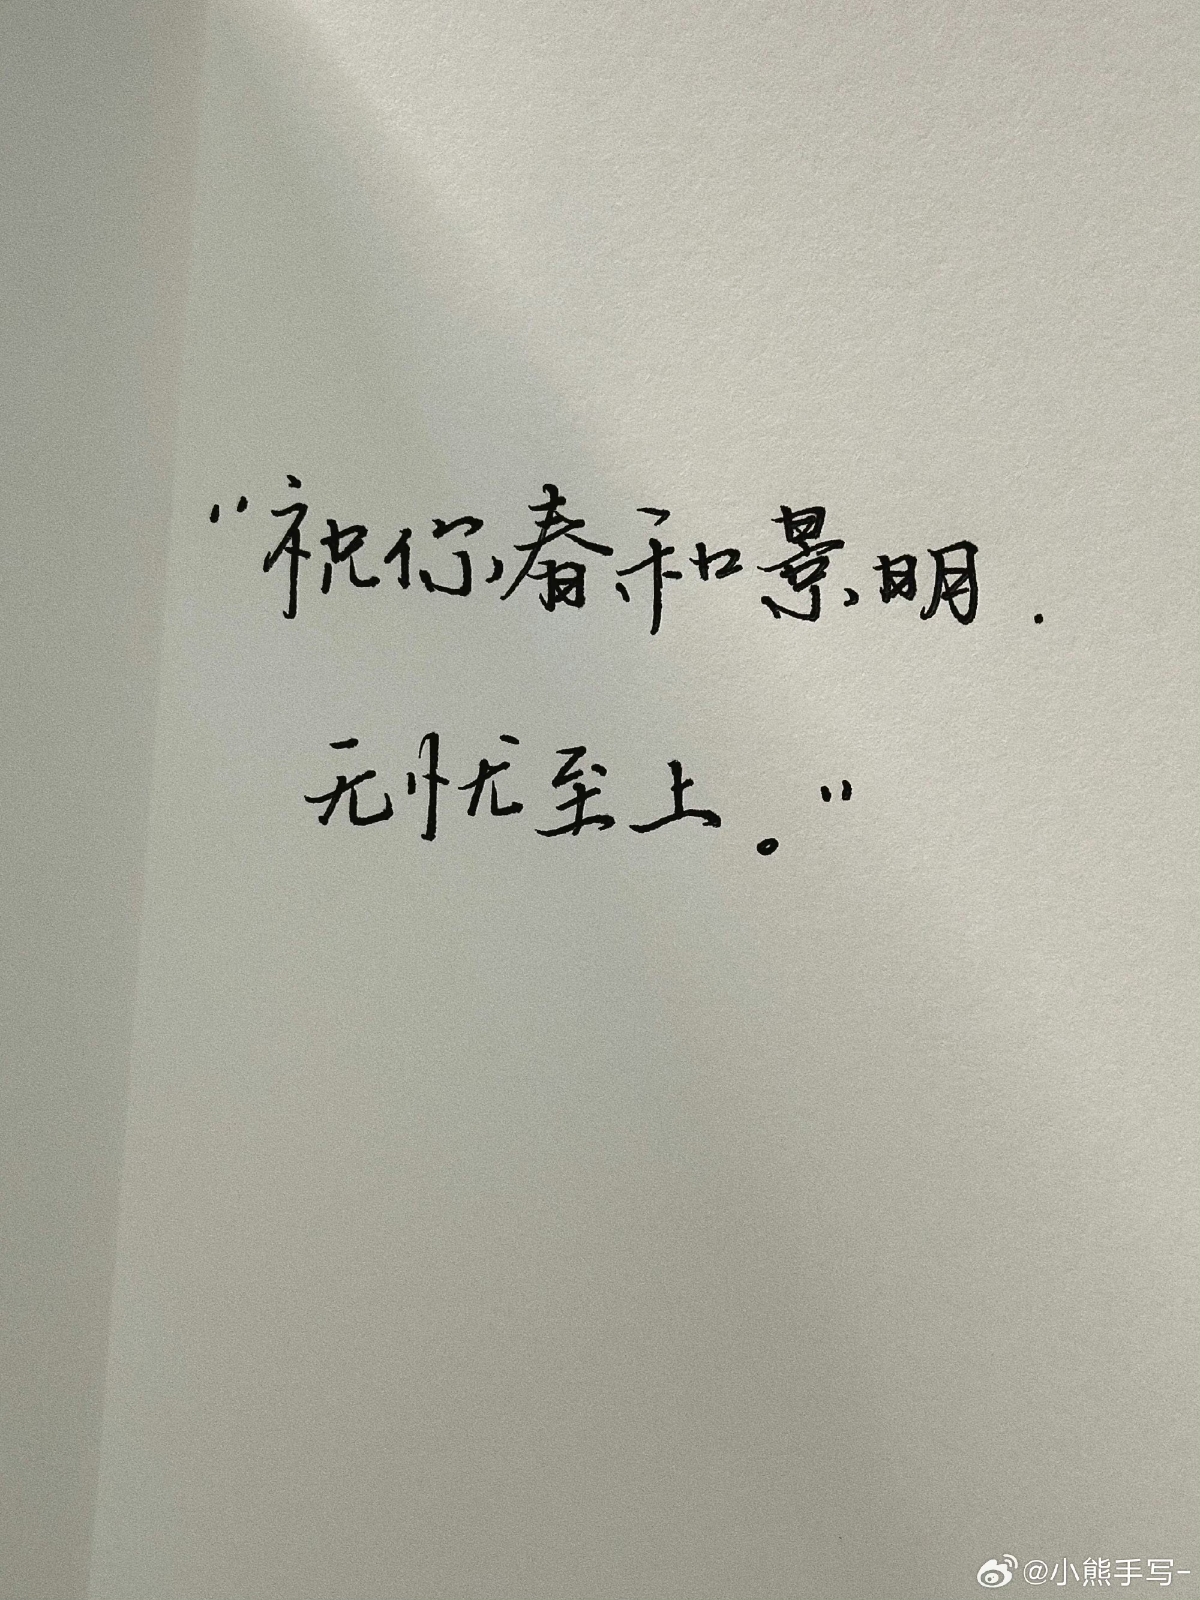 “祝你春和景明.
无忧至上。”
@小熊手写-